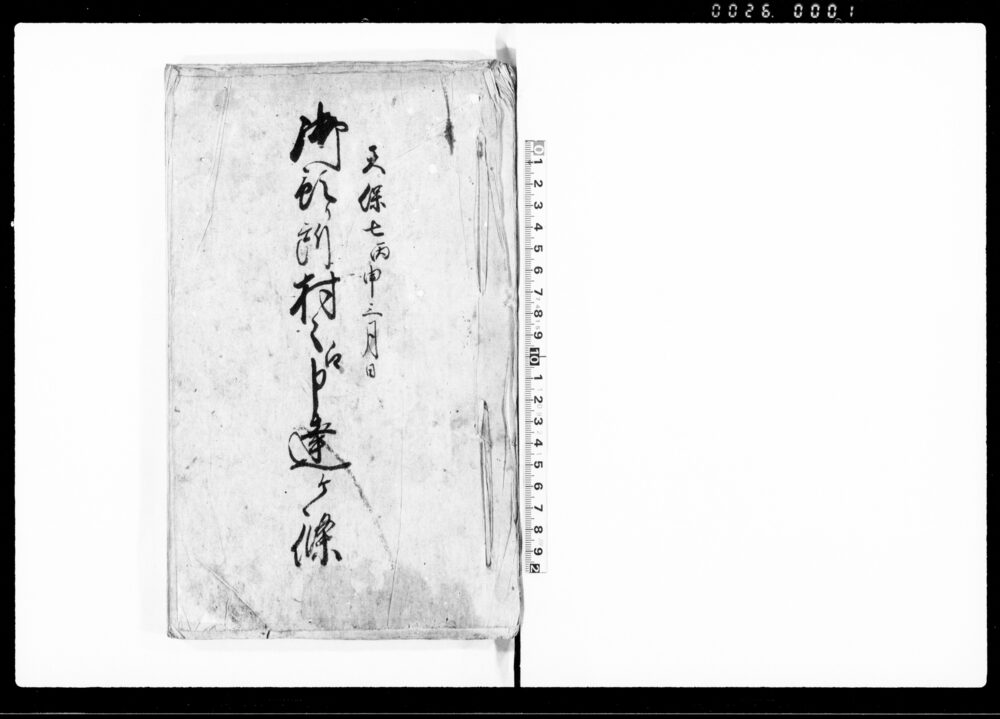 0026 0001
天保七丙申三月日
御預所村々江申達ケ條
0 1 2 3 4 5 6 7 8 9 10 1 2 3 4 5 6 7 8 9 2